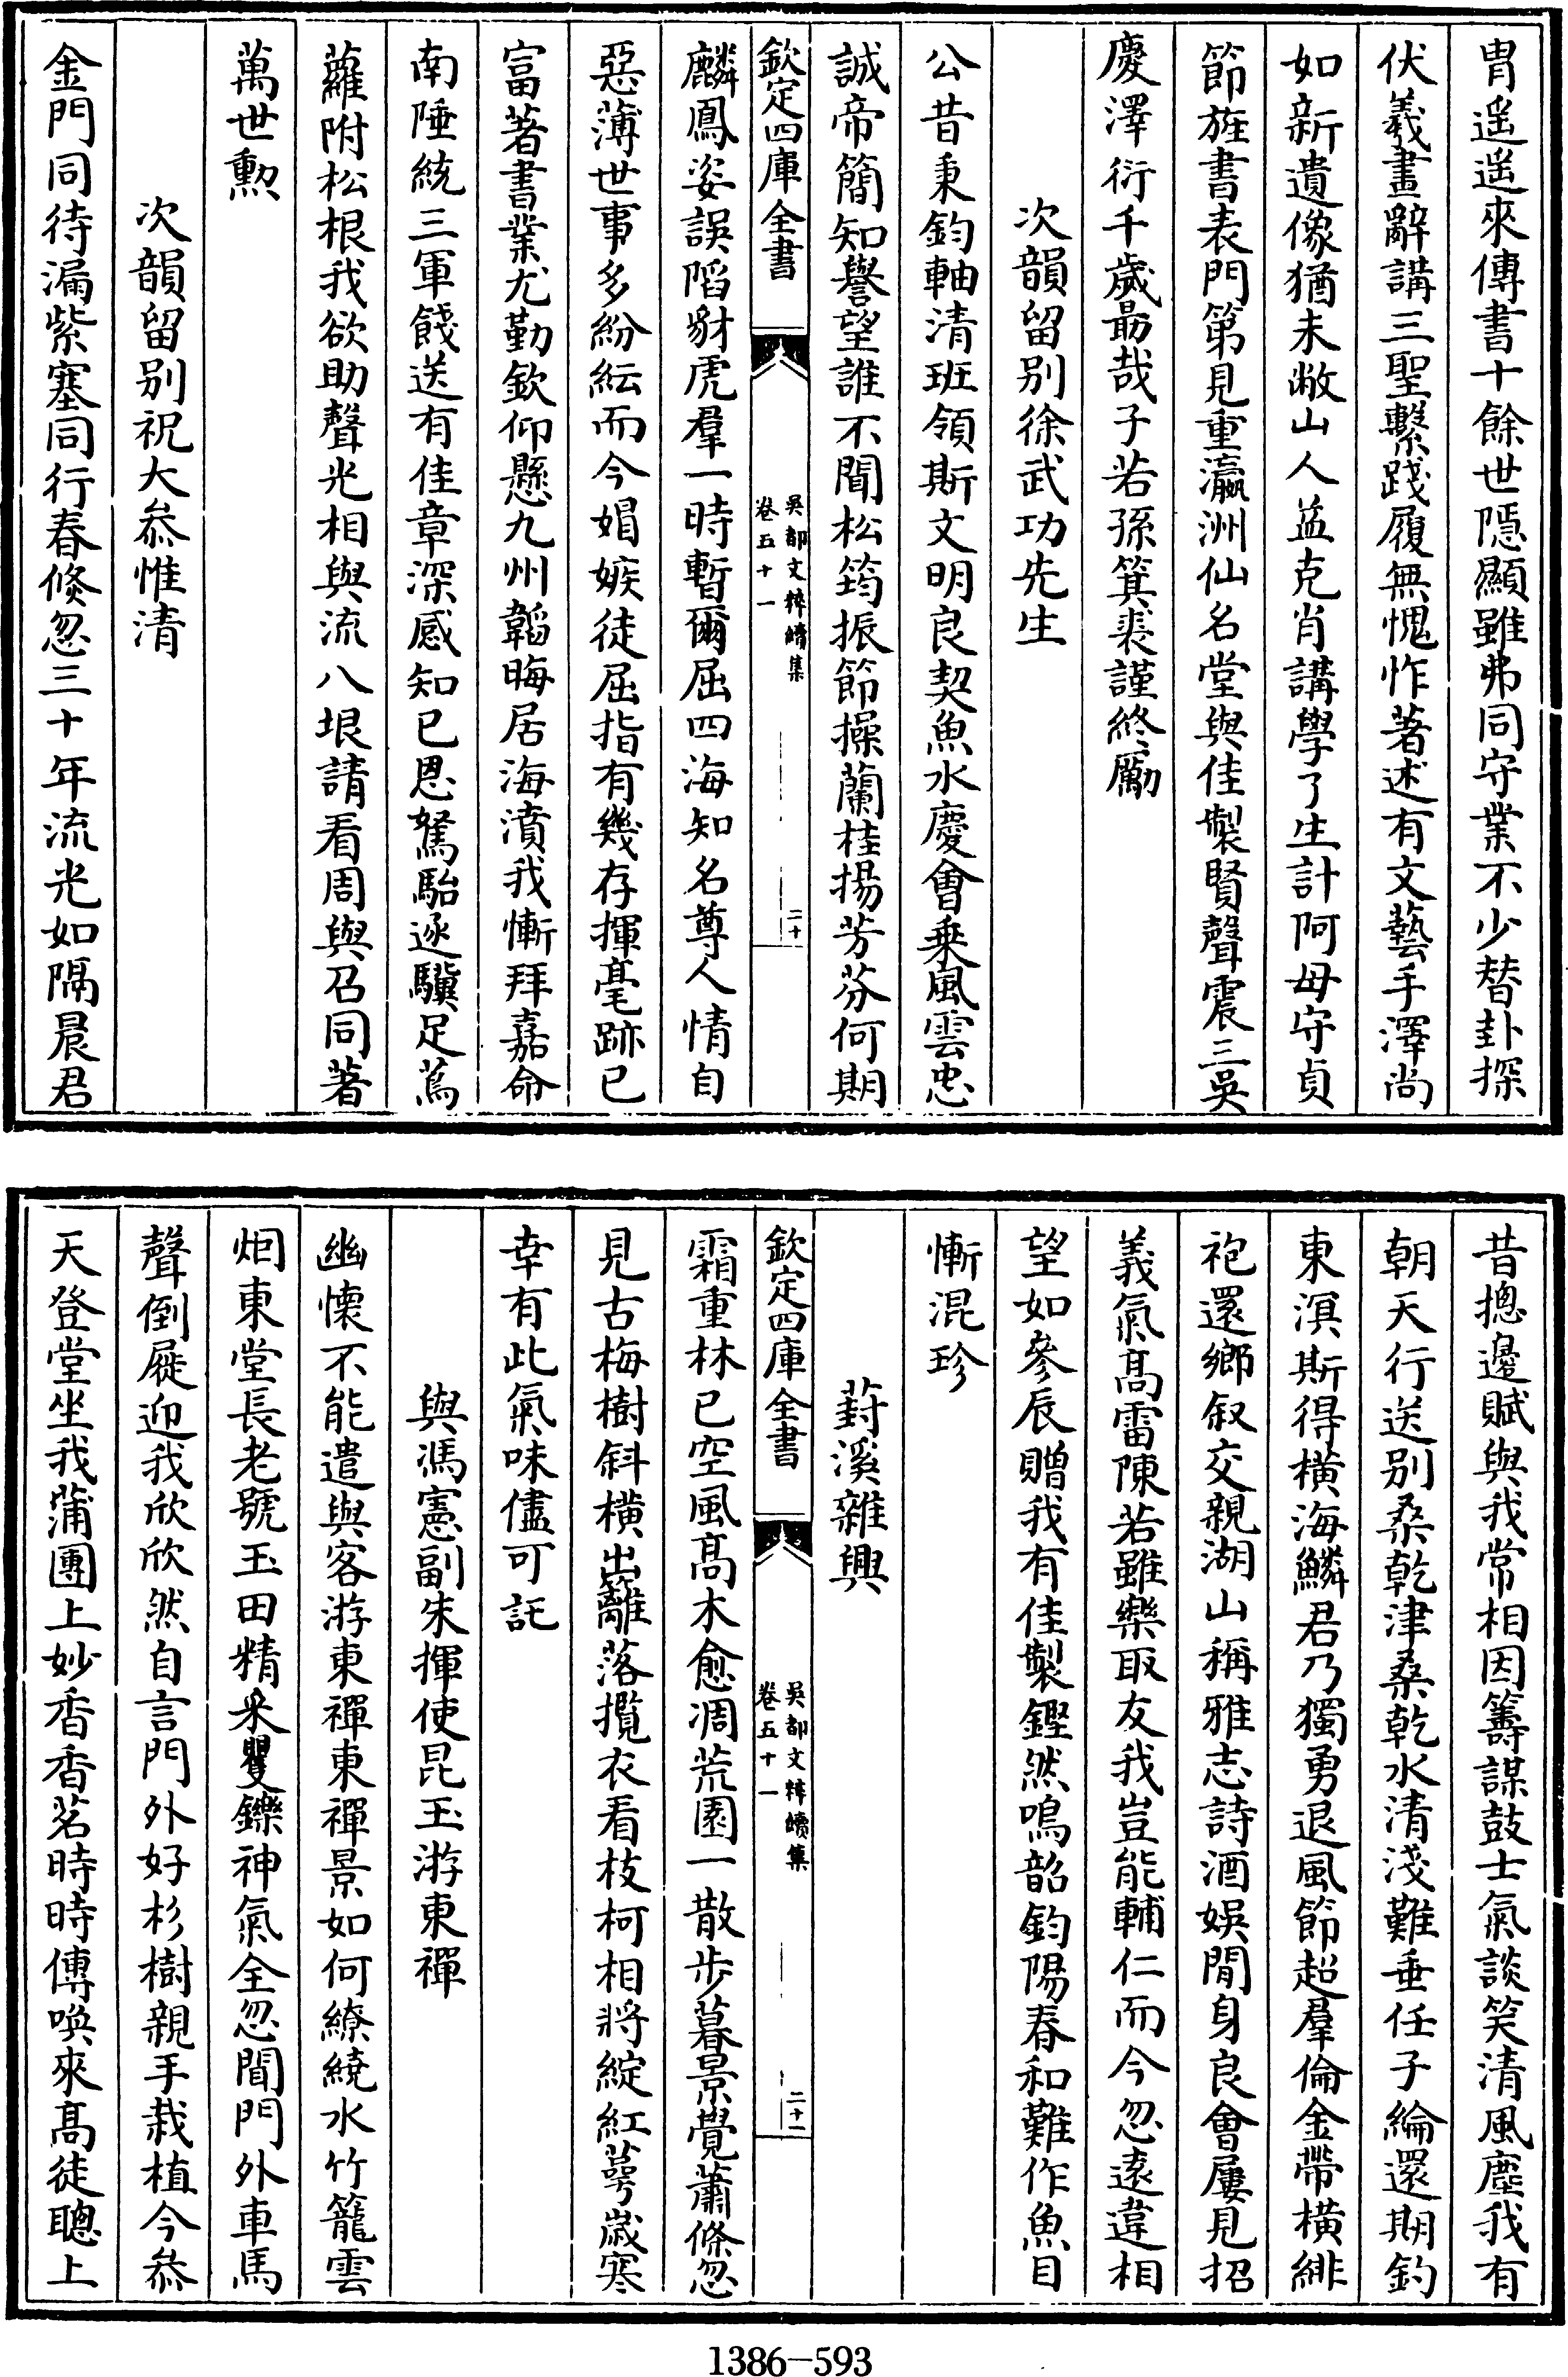 冑遥遥來傳書十餘世隱顯雖弗同守業不少替卦探
伏羲畫辭講三聖繫踐履無愧怍著述有文藝手澤尚
如新遺像猶未敝山人益克肖講學了生計阿母守貞
節旌書表門第見重瀛洲仙名堂與佳製賢聲震三吳
慶澤衍千歲勗哉子若孫箕裘謹終勵
次韻留别徐武功先生
公昔秉鈞軸清班領斯文明良契魚水慶會乗風雲忠
誠帝簡知譽望誰不聞松筠振節操蘭桂揚芳芬何期
欽定四庫全書
吳都文粹續集
卷五十一
二十
麟鳳姿誤䧟豺虎羣一時暫爾屈四海知名尊人情自
惡薄世事多紛紜而今娼嫉徒屈指有幾存揮毫跡已
富著書業尤勤欽仰懸九州韜晦居海濆我慚拜嘉命
南陲統三軍餞送有佳章深感知已恩駑駘逐驥足蔦
蘿附松根我欲助聲光相與流八垠請看周與召同著
萬世勲
次韻留别祝大叅惟清
金門同待漏紫塞同行春倐忽三十年流光如隔晨君
昔摠邊賦與我常相因籌謀鼓士氣談笑清風塵我有
朝天行送别桑乾津桑乾水清淺難垂任子綸還期釣
東溟斯得横海鱗君乃獨勇退風節超羣倫金帶横緋
袍還鄉叙交親湖山稱雅志詩酒娛閒身良會屢見招
義氣髙雷陳若雖樂取友我豈能輔仁而今忽逺違相
望如參辰贈我有佳製鏗然鳴韶鈞陽春和難作魚目
慚混珍
葑溪雜興
欽定四庫全書
吳都文粹續集
卷五十一
二十一
霜重林已空風髙木愈凋荒園一散步暮景覺蕭條忽
見古梅樹斜横出籬落攬衣看枝柯相將綻紅萼歲寒
幸有此氣味儘可託
與馮憲副朱揮使昆玉游東禪
幽懷不能遣與客游東禪東禪景如何繚繞水竹籠雲
烟東堂長老號玉田精采矍鑠神氣全忽聞門外車馬
聲倒屣迎我欣欣然自言門外好杉樹親手栽植今叅
天登堂坐我蒲團上妙香香茗時時傳喚來髙徒聰上
1386-593